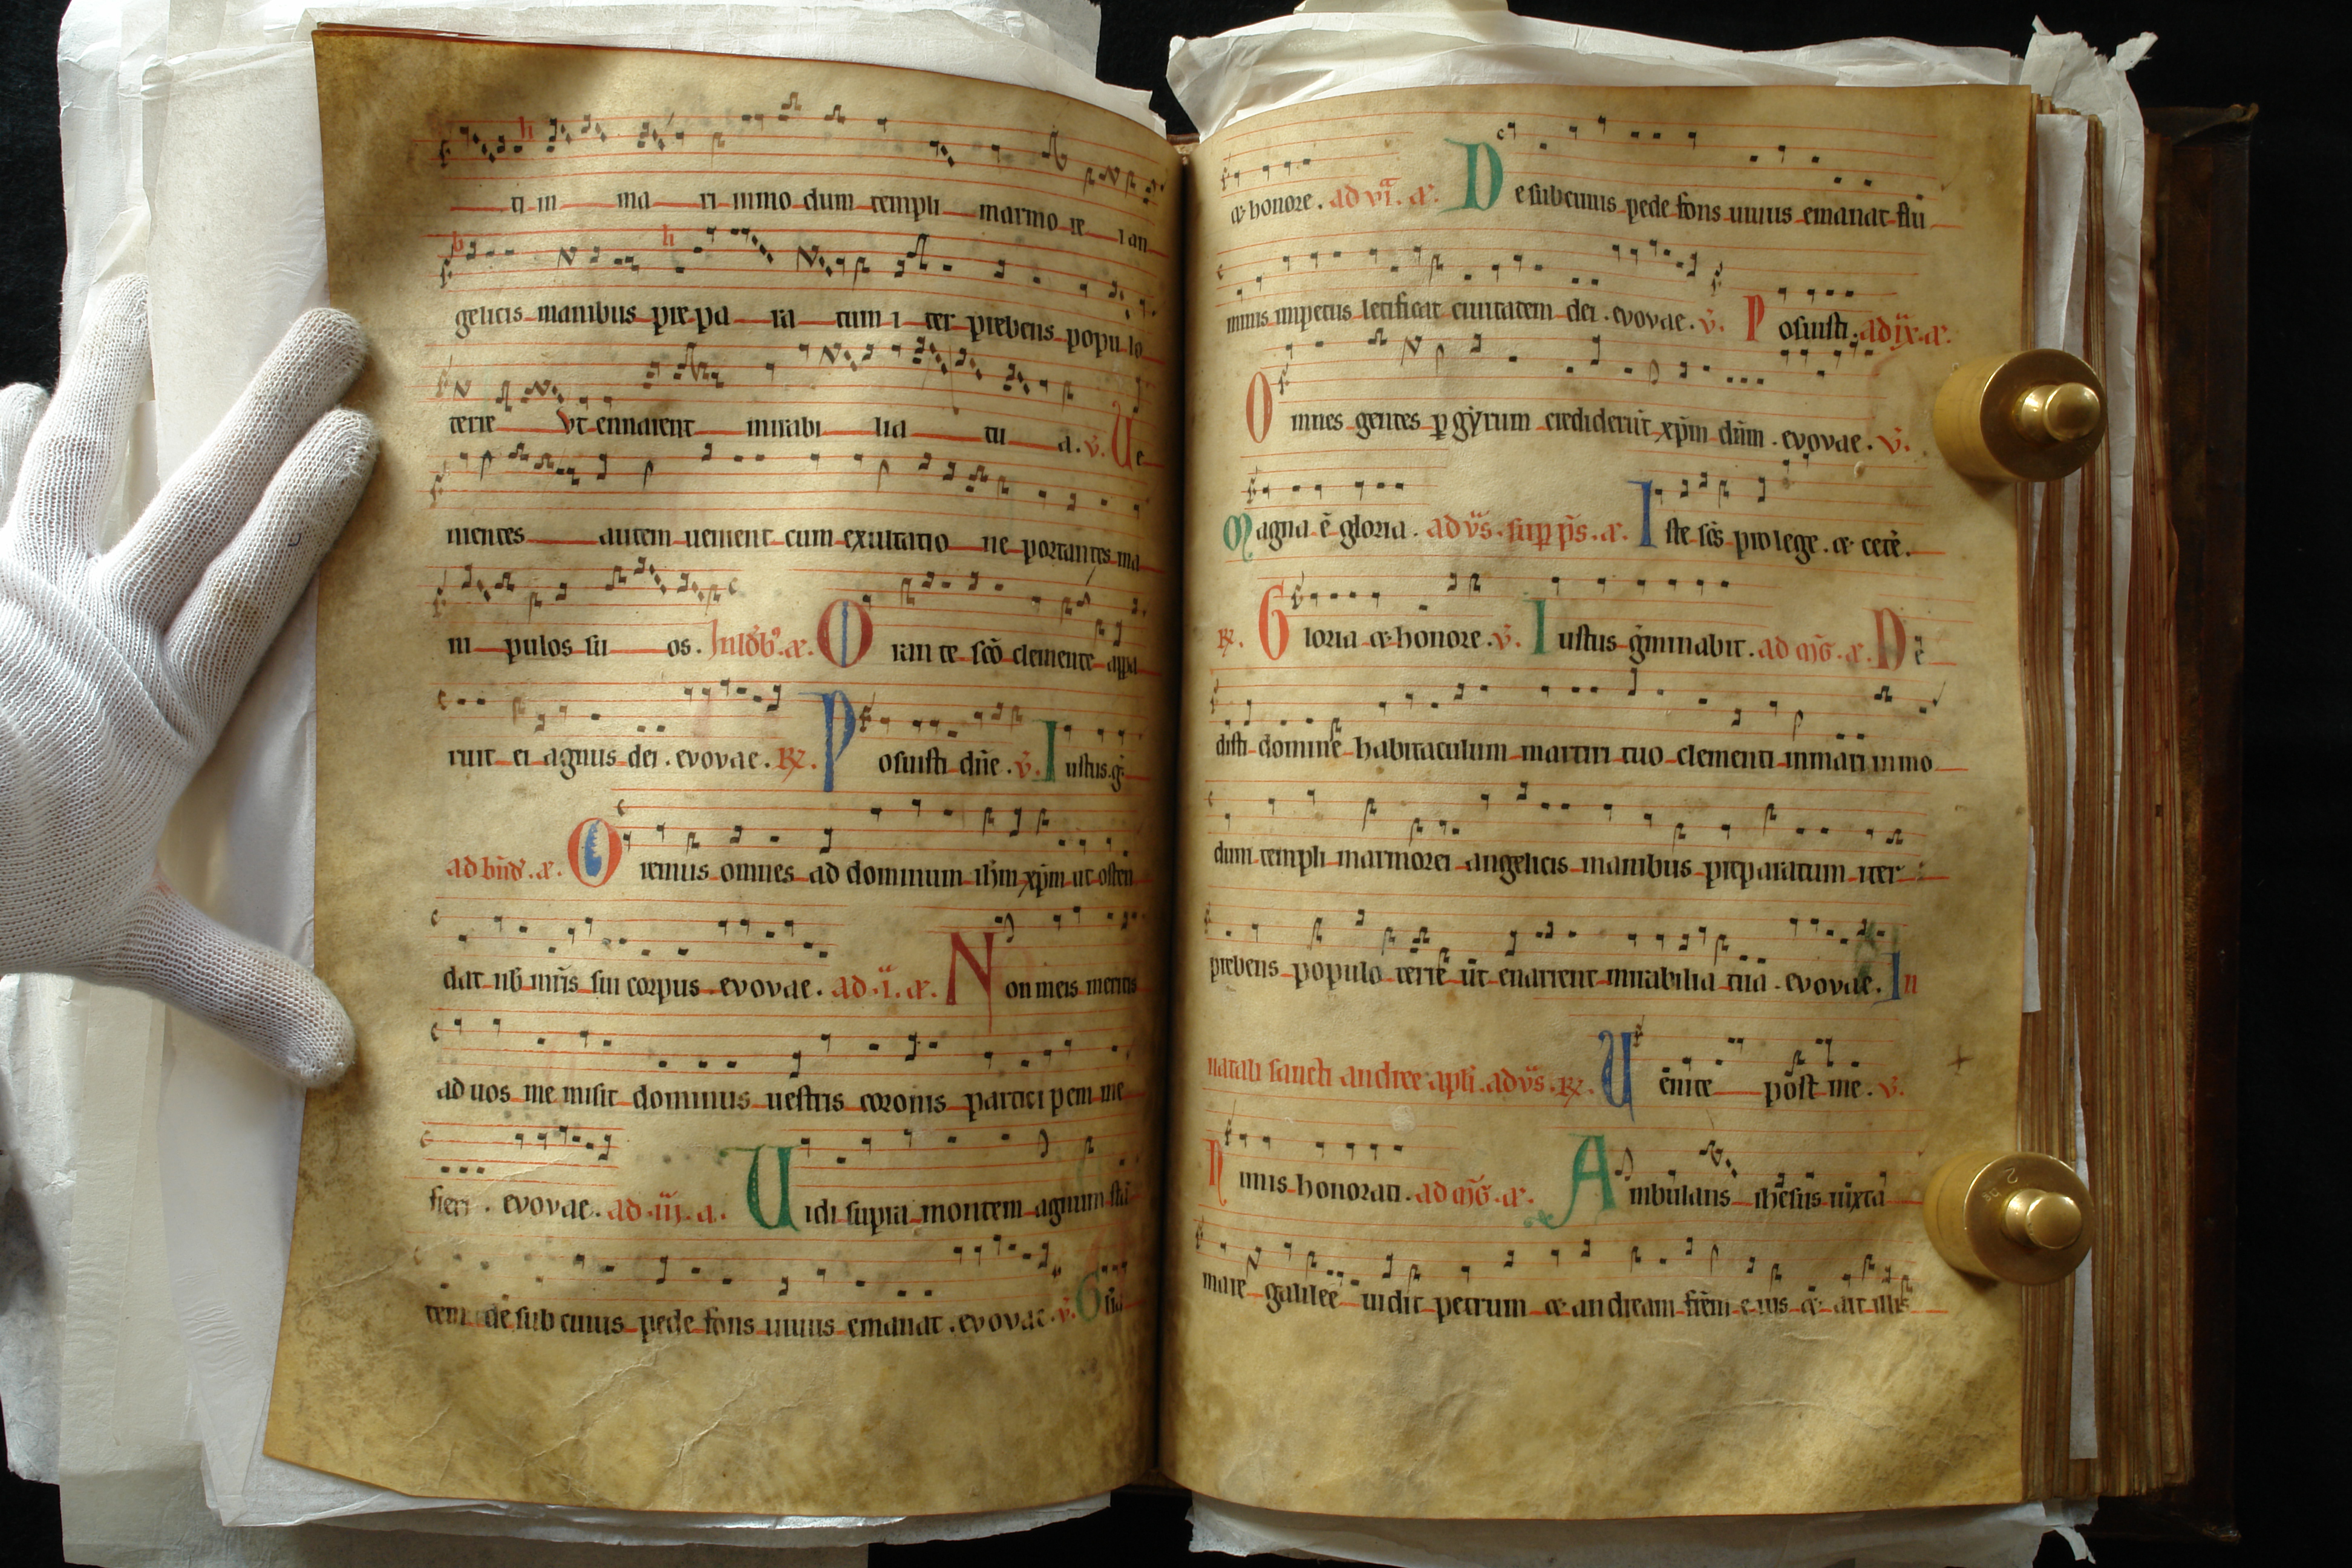 ti in ma ri in modum templi marmo re i an
gelicis manibus pre pa ra tum i ter prebens popu lo
terre Vt ennarent mirabi lia tu a. v̄. Ve
nientes autem uenient cum exultatio ne portantes ma
ni pulos su os. a᷒. Oran te sc̄o clemente appa
ruit ei agnus dei. evovae. R̷. Posuisti dn̄e. v̄. Iustus.g̃
a᷒. Oremus omnes ad dominum ihm̄ xp̄m ut osten
dat nb̄ mr̄is sui corpus evovae. ad .i. a᷒. Non meis meritis
ad uos me misit dominus uestris coronis partici pem me
fieri. evovae. ad .iii. a. Vidi supra montem agnum stā
tem de sub cuius pede fons uiuus emanat. evovae. v̄. Glīa
&honore. ad vi. a᷒. De sub cuius pede fons uiuus emanat flu
minis impetus letificat ciuitatem dei. evovae. v̄. Posuisti. ad ix. a᷒.
Omnes gentes p gẏrum crediderūt xp̄m dn̄m. evovae. v̄.
Magna ē gloria. ad vs̄. sup ps̄. a᷒. Iste sc̄s pro lege. & ceт̄.
R̷. Gloria & honore. v̄. Iustus g̃minabit. ad mḡ. a᷒. De
disti domine habitaculum martiri tuo clementi in mari in mo
dum templi marmorei angelicis manibus preparatum iter
prebens populo terre ut enarrent mirabilia tua. evovae. In
natali sancti andree apli. ad vs̄. R̷. Venite post me. v̄.
Nimis honorati. ad mḡ. a᷒. Ambulans ihesus iuxta
mare galilee uidit petrum & andream frēm e ius & ait illis